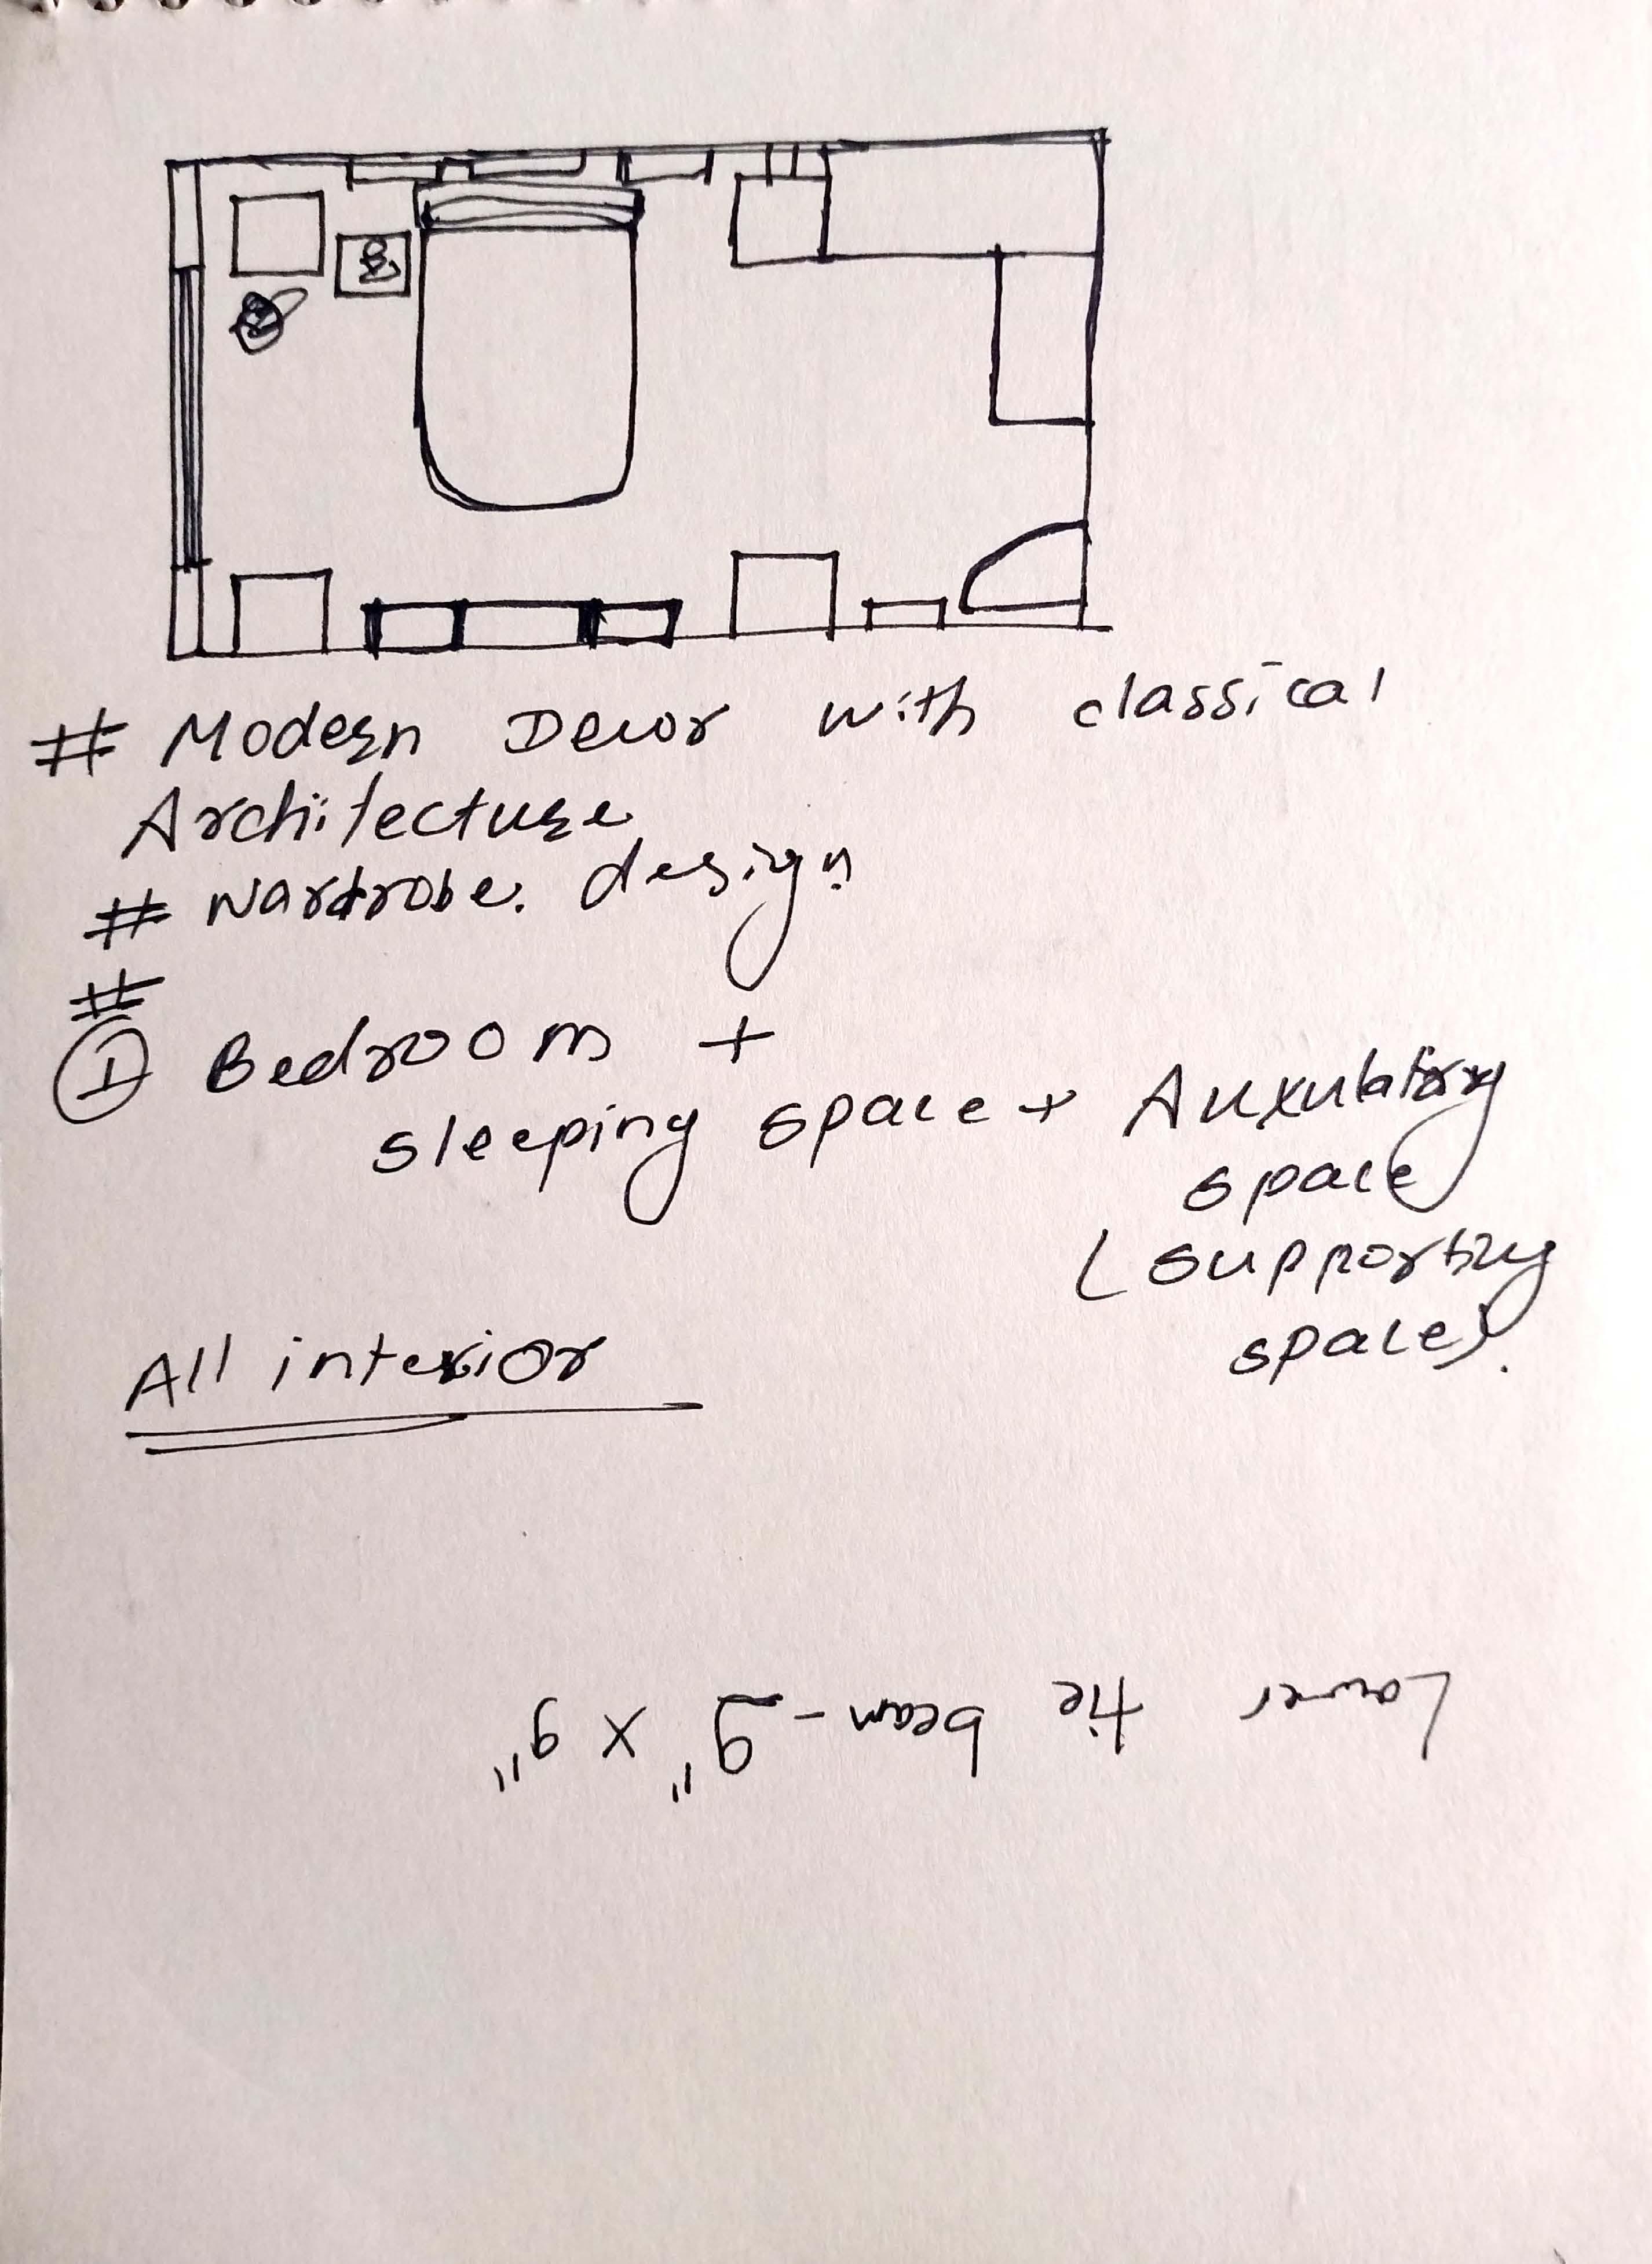 # Modern Decor with classical
Architecture
# Wardrobe. design
#
① Bedroom +
sleeping space + Auxulatory
space
( supporting
space).
All interior
Lower tie beam - 9" x 9"